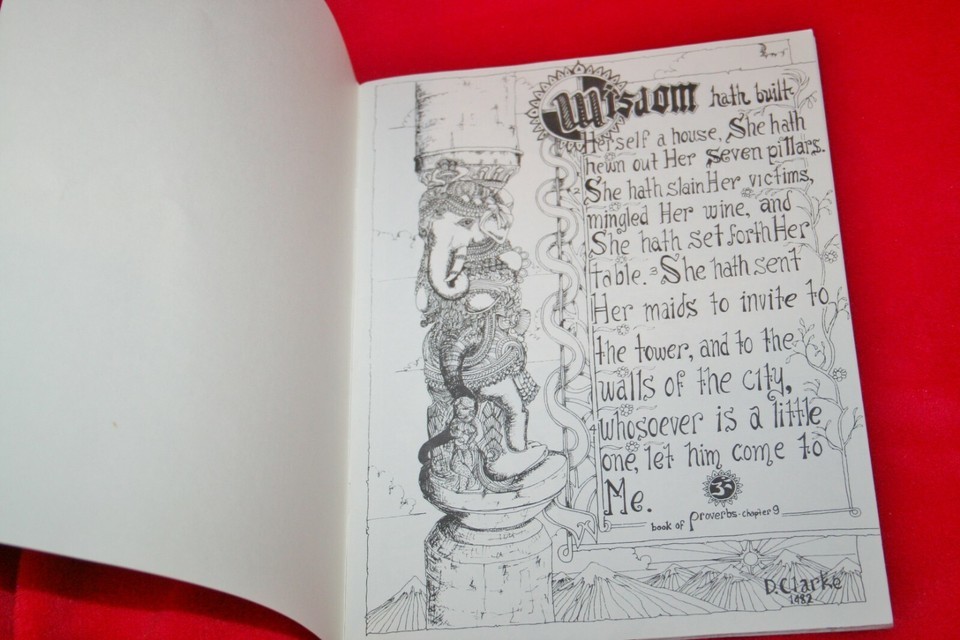 Wisdom hath built
Herself a house. She hath
hewn out Her seven pillars.
2 She hath slain Her victims,
mingled Her wine, and
She hath set forth Her
table. 3 She hath sent
Her maids to invite to
the tower, and to the
walls of the city,
4 whosoever is a little
one, let him come to
Me.
ॐ
book of Proverbs · chapter 9
D. Clarke
1982